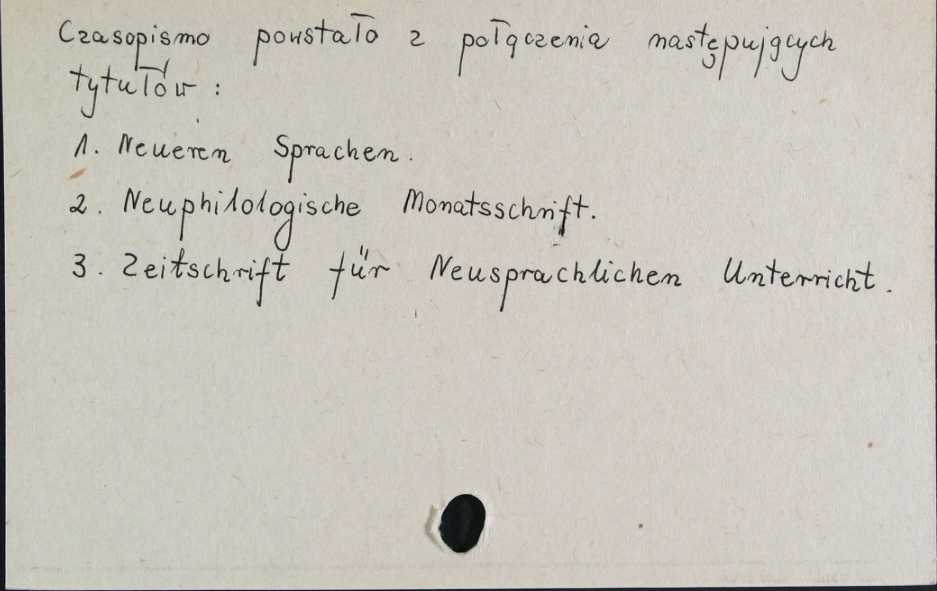 Czasopismo powstało z połączenia następujących
tytułów :
1. Neueren Sprachen.
2. Neuphilologische Monatsschrift.
3. Zeitschrift für Neusprachlichen Unterricht.